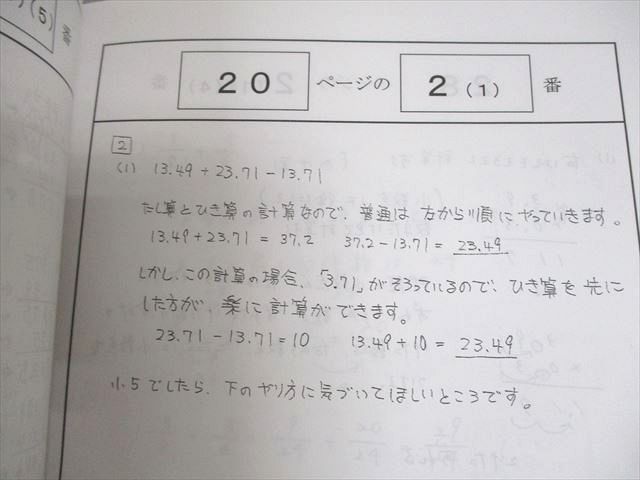 (5)
番
20 ページの 2 (1) 番
2
(1) 13.49 + 23.71 - 13.71
たし算とひき算の計算なので、普通は左から順にやっていきます。
13.49 + 23.71 = 37.2 37.2 - 13.71 = 23.49
しかし、この計算の場合、「3.71」がそろっているので、ひき算を先に
した方が、楽に計算ができます。
23.71 - 13.71 = 10 13.49 + 10 = 23.49
小5でしたら、下のやり方に気づいてほしいところです。